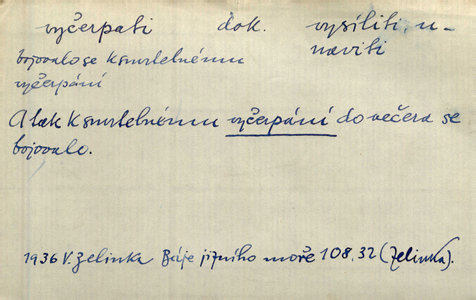 vyčerpati dok. vysíliti, u-
naviti
bojovalo se k smrtelnému
vyčerpání
A tak k smrtelnému vyčerpání do večera se
bojovalo.
1936 V. Zelinka Báje jižního moře 108, 32 (Zelinka).